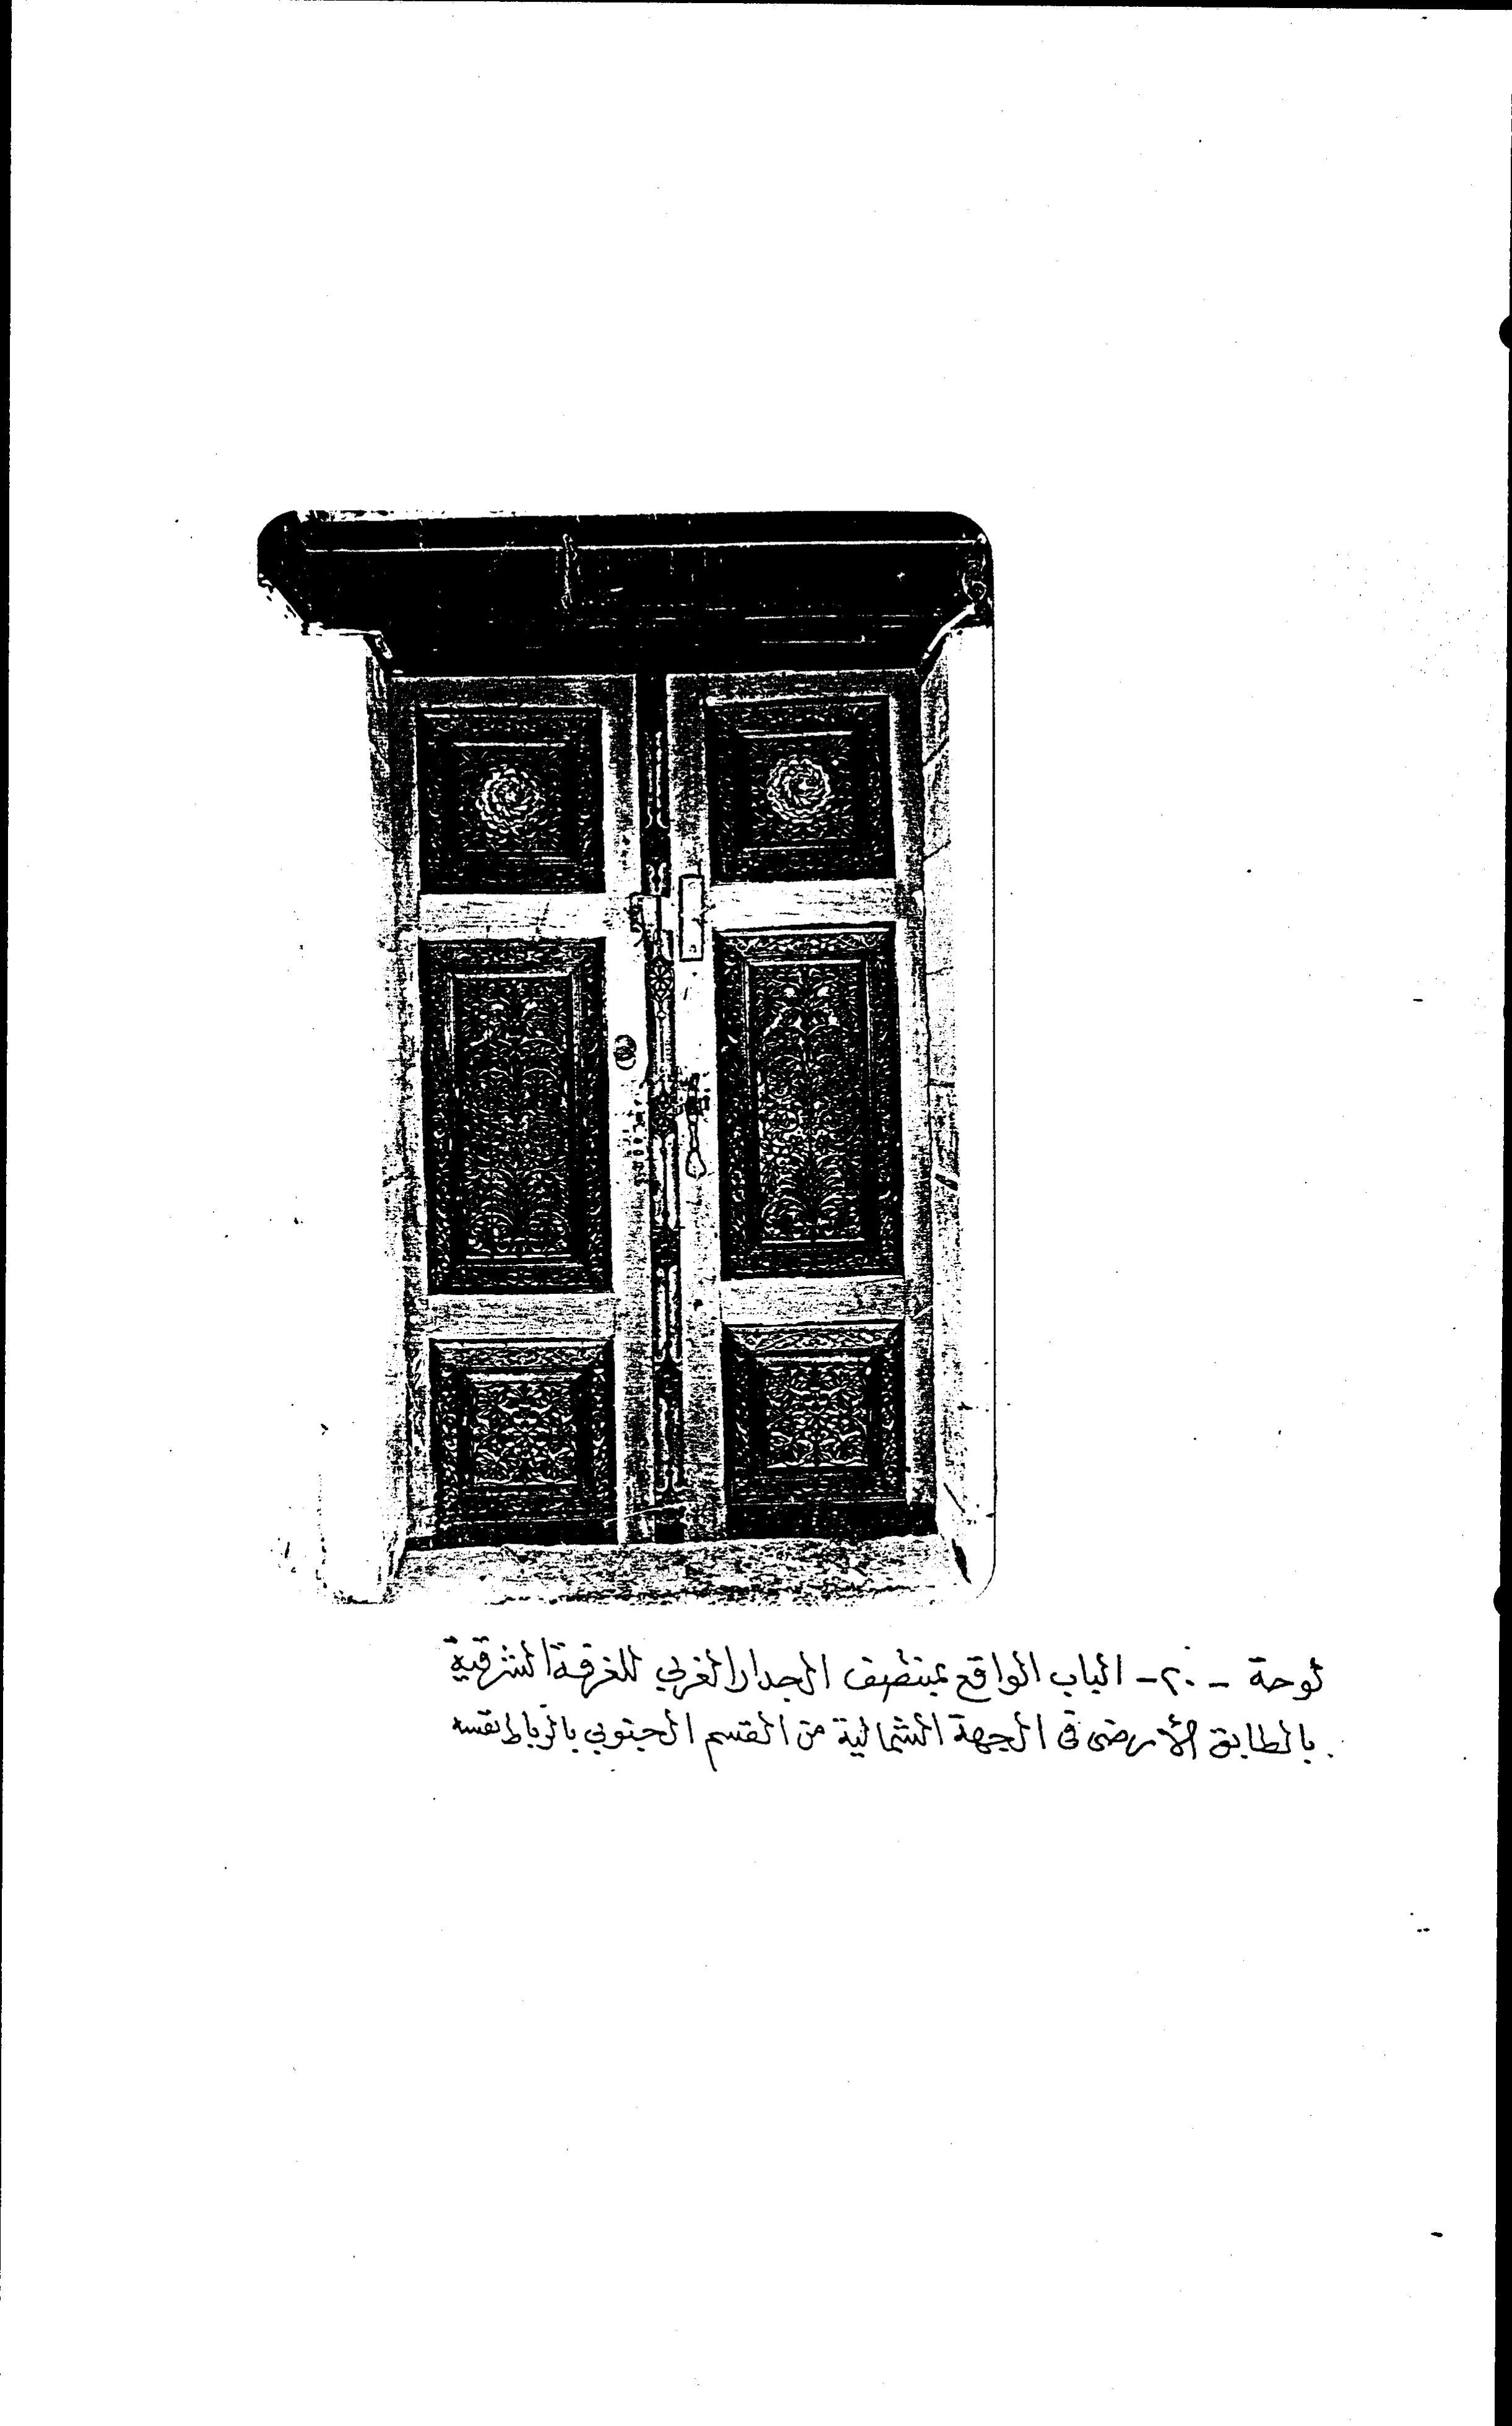 لوحة - ٢٠ - الباب الواقع بمنتصف الجدار الغربي للغرفة الشرقية
بالطابق الأرضى فى الجهة الشمالية من القسم الجنوبي بالرباط نفسه